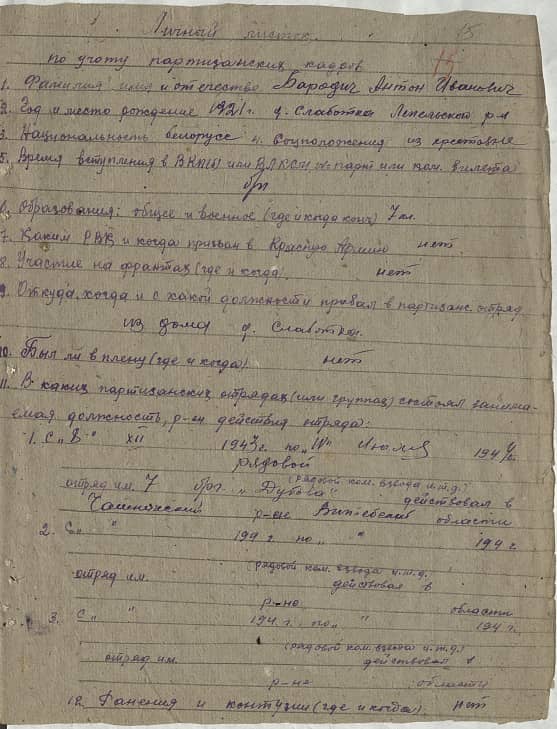 Личный листок 15
по учоту партизанских кадров 15
1. Фамилия имя и отечество Бародич Антон Иванович
2. Год и место рождение 1921 г. д. Слаботка Лепельского р-н
3. Национальность белорусс 4. Соцположения из крестьян
5. Время вступления в ВКП(б) или ВЛКСМ № парт или ком. билета
б/п
6. Образования: общее и военное (где и когда конч) 7 кл.
7. Каким РВК и когда призван в Красную Армию нет
8. Участие на фронтах (где и когда). нет
9. Откуда, когда и с какой должности прибыл в партизанс. отряд
из дома д. Слаботка.
10. Был ли в плену (где и когда). нет
11. В каких партизанских отрядах (или группах) состоял занима-
емая должность, р-он действия отряда:
1. С „ " XII 1943 г. по „ " Июля 1944 г.
рядовой
(рядовой ком. взвода и.т.д.)
отряд им. 7 бриг. „Дубова" действовал в
Чашникский р-не Витебской области
2. С „ " 194 г. по „ " 194 г.
(рядовой ком. взвода и.т.д.
отряд им. действовал в
р-не области
3. С „ " 194 г. по „ " 194 г.
(рядовой ком. взвода и.т.д.)
отряд им. действовал в
р-не области
12. Ранения и контузии (где и когда). нет